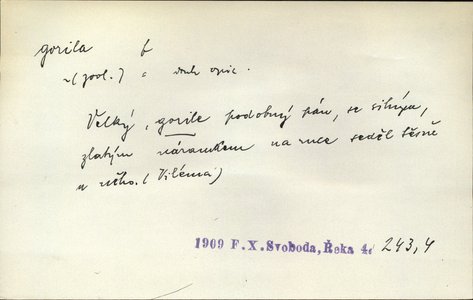 gorila f
~(zool.) a druh opic.
Velký, gorile podobný pán, se silným,
zlatým náramkem na ruce seděl těsně
u něho. (Viléma)
1909 F.X.Svoboda, Řeka 4. 243,4